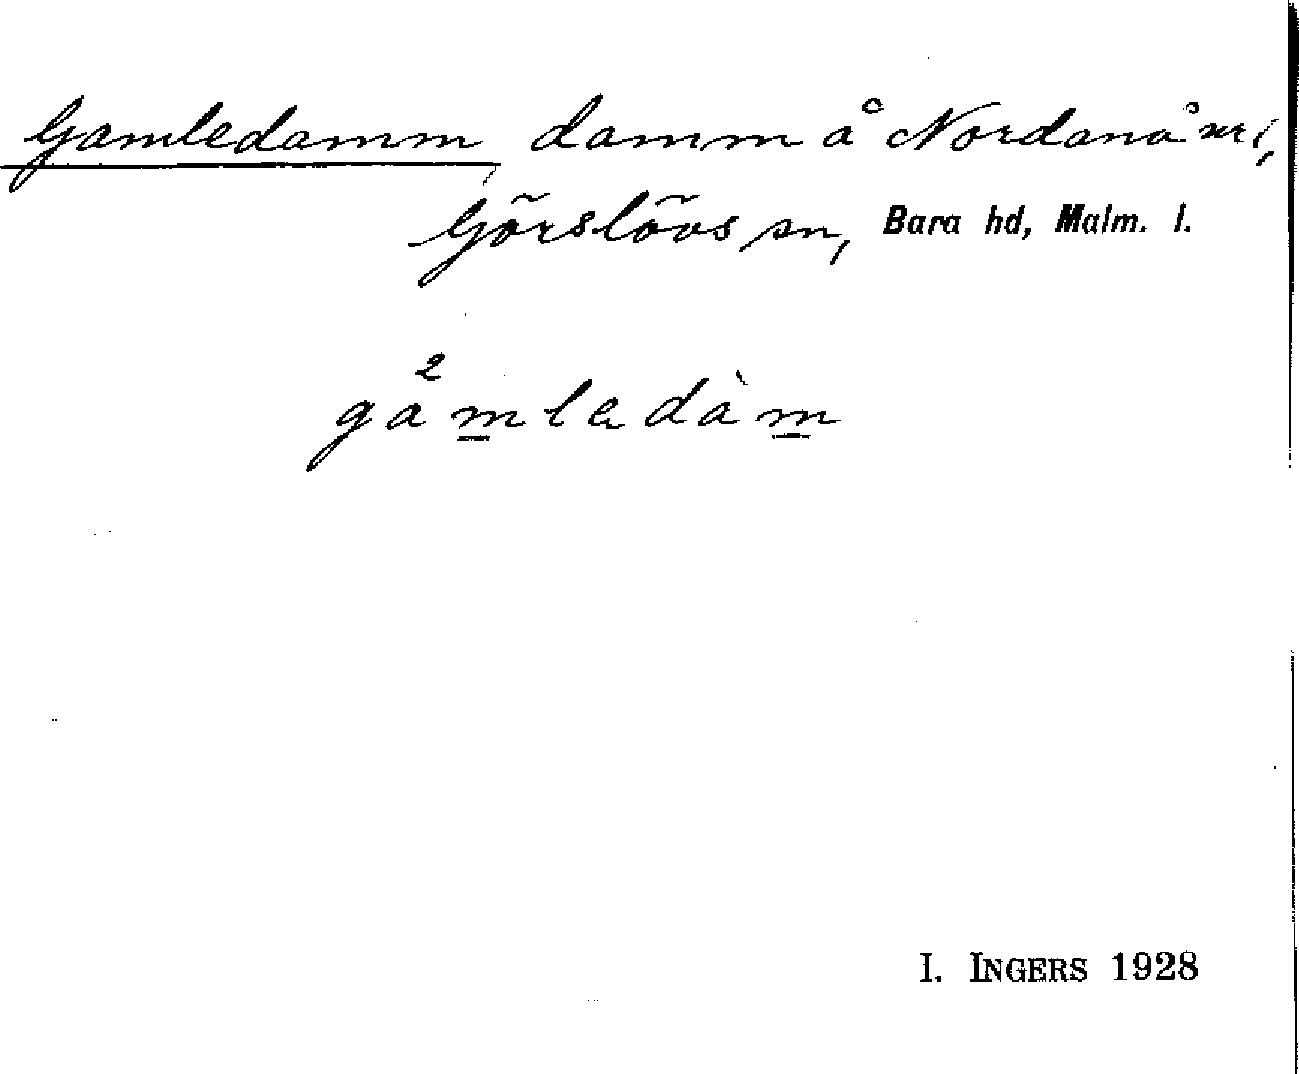 Gamledamm, damm å Nordanå nr 1,
Görslövs sn, Bara hd, Malm. l.
ga²mledàm
I. INGERS 1928